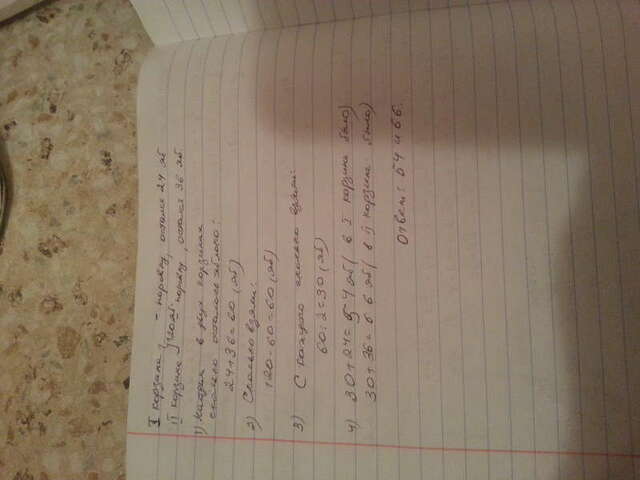 I корзина - поровну, остался 24 яб
120яб
II корзина поровну, остался 36 яб.
1) в двух корзинах
сколько осталось яблоко:
24+36=60 (яб)
2) Сколько взяли:
120-60=60 (яб)
3) С каждого сколько взяли:
60:2=30 (яб)
4) 30+24=54 яб (в I корзина было)
30+36=66 яб (в II корзина было)
Ответ: 54 и 66.